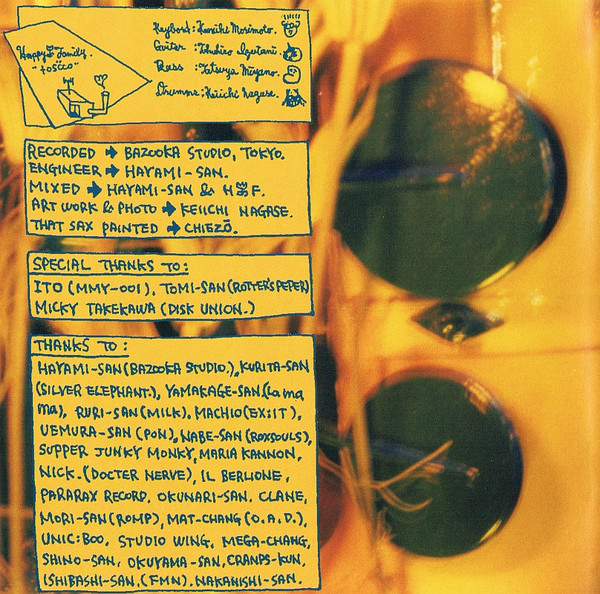 Happy Family.
"toscco"
Keybord: Kenichi Morimoto.
Guiter :Tokuhiro Izutani.
Bass :Tatsuya Miyano.
Drumns :Keiichi Nagase.
RECORDED ➡ BAZOOKA STUDIO, TOKYO.
ENGINEER ➡ HAYAMI-SAN.
MIXED ➡ HAYAMI-SAN & H F.
ART WORK & PHOTO ➡ KEIICHI NAGASE.
THAT SAX PAINTED ➡ CHIEZŌ.
SPECIAL THANKS TO:
ITO (MMY-001), TOMI-SAN (ROTTER'S PEPER)
MICKY TAKEKAWA (DISK UNION.)
THANKS TO:
HAYAMI-SAN (BAZOOKA STUDIO.), KURITA-SAN
(SILVER ELEPHANT.), YAMAKAGE-SAN (La ma
ma), RURI-SAN (MILK), MACHIO (EX:IT),
UEMURA-SAN (PON), NABE-SAN (ROXSOULS),
SUPPER JUNKY MONKY, MARIA KANNON,
NICK. (DOCTER NERVE), IL BERLIONE,
PARARAX RECORD, OKUNARI-SAN, CLANE,
MORI-SAN (ROMP), MAT-CHANG (O.A.D.),
UNIC:BOO. STUDIO WING, MEGA-CHANG,
SHINO-SAN, OKUYAMA-SAN, CRANPS-KUN,
ISHIBASHI-SAN. (FMN). NAKANISHI-SAN.